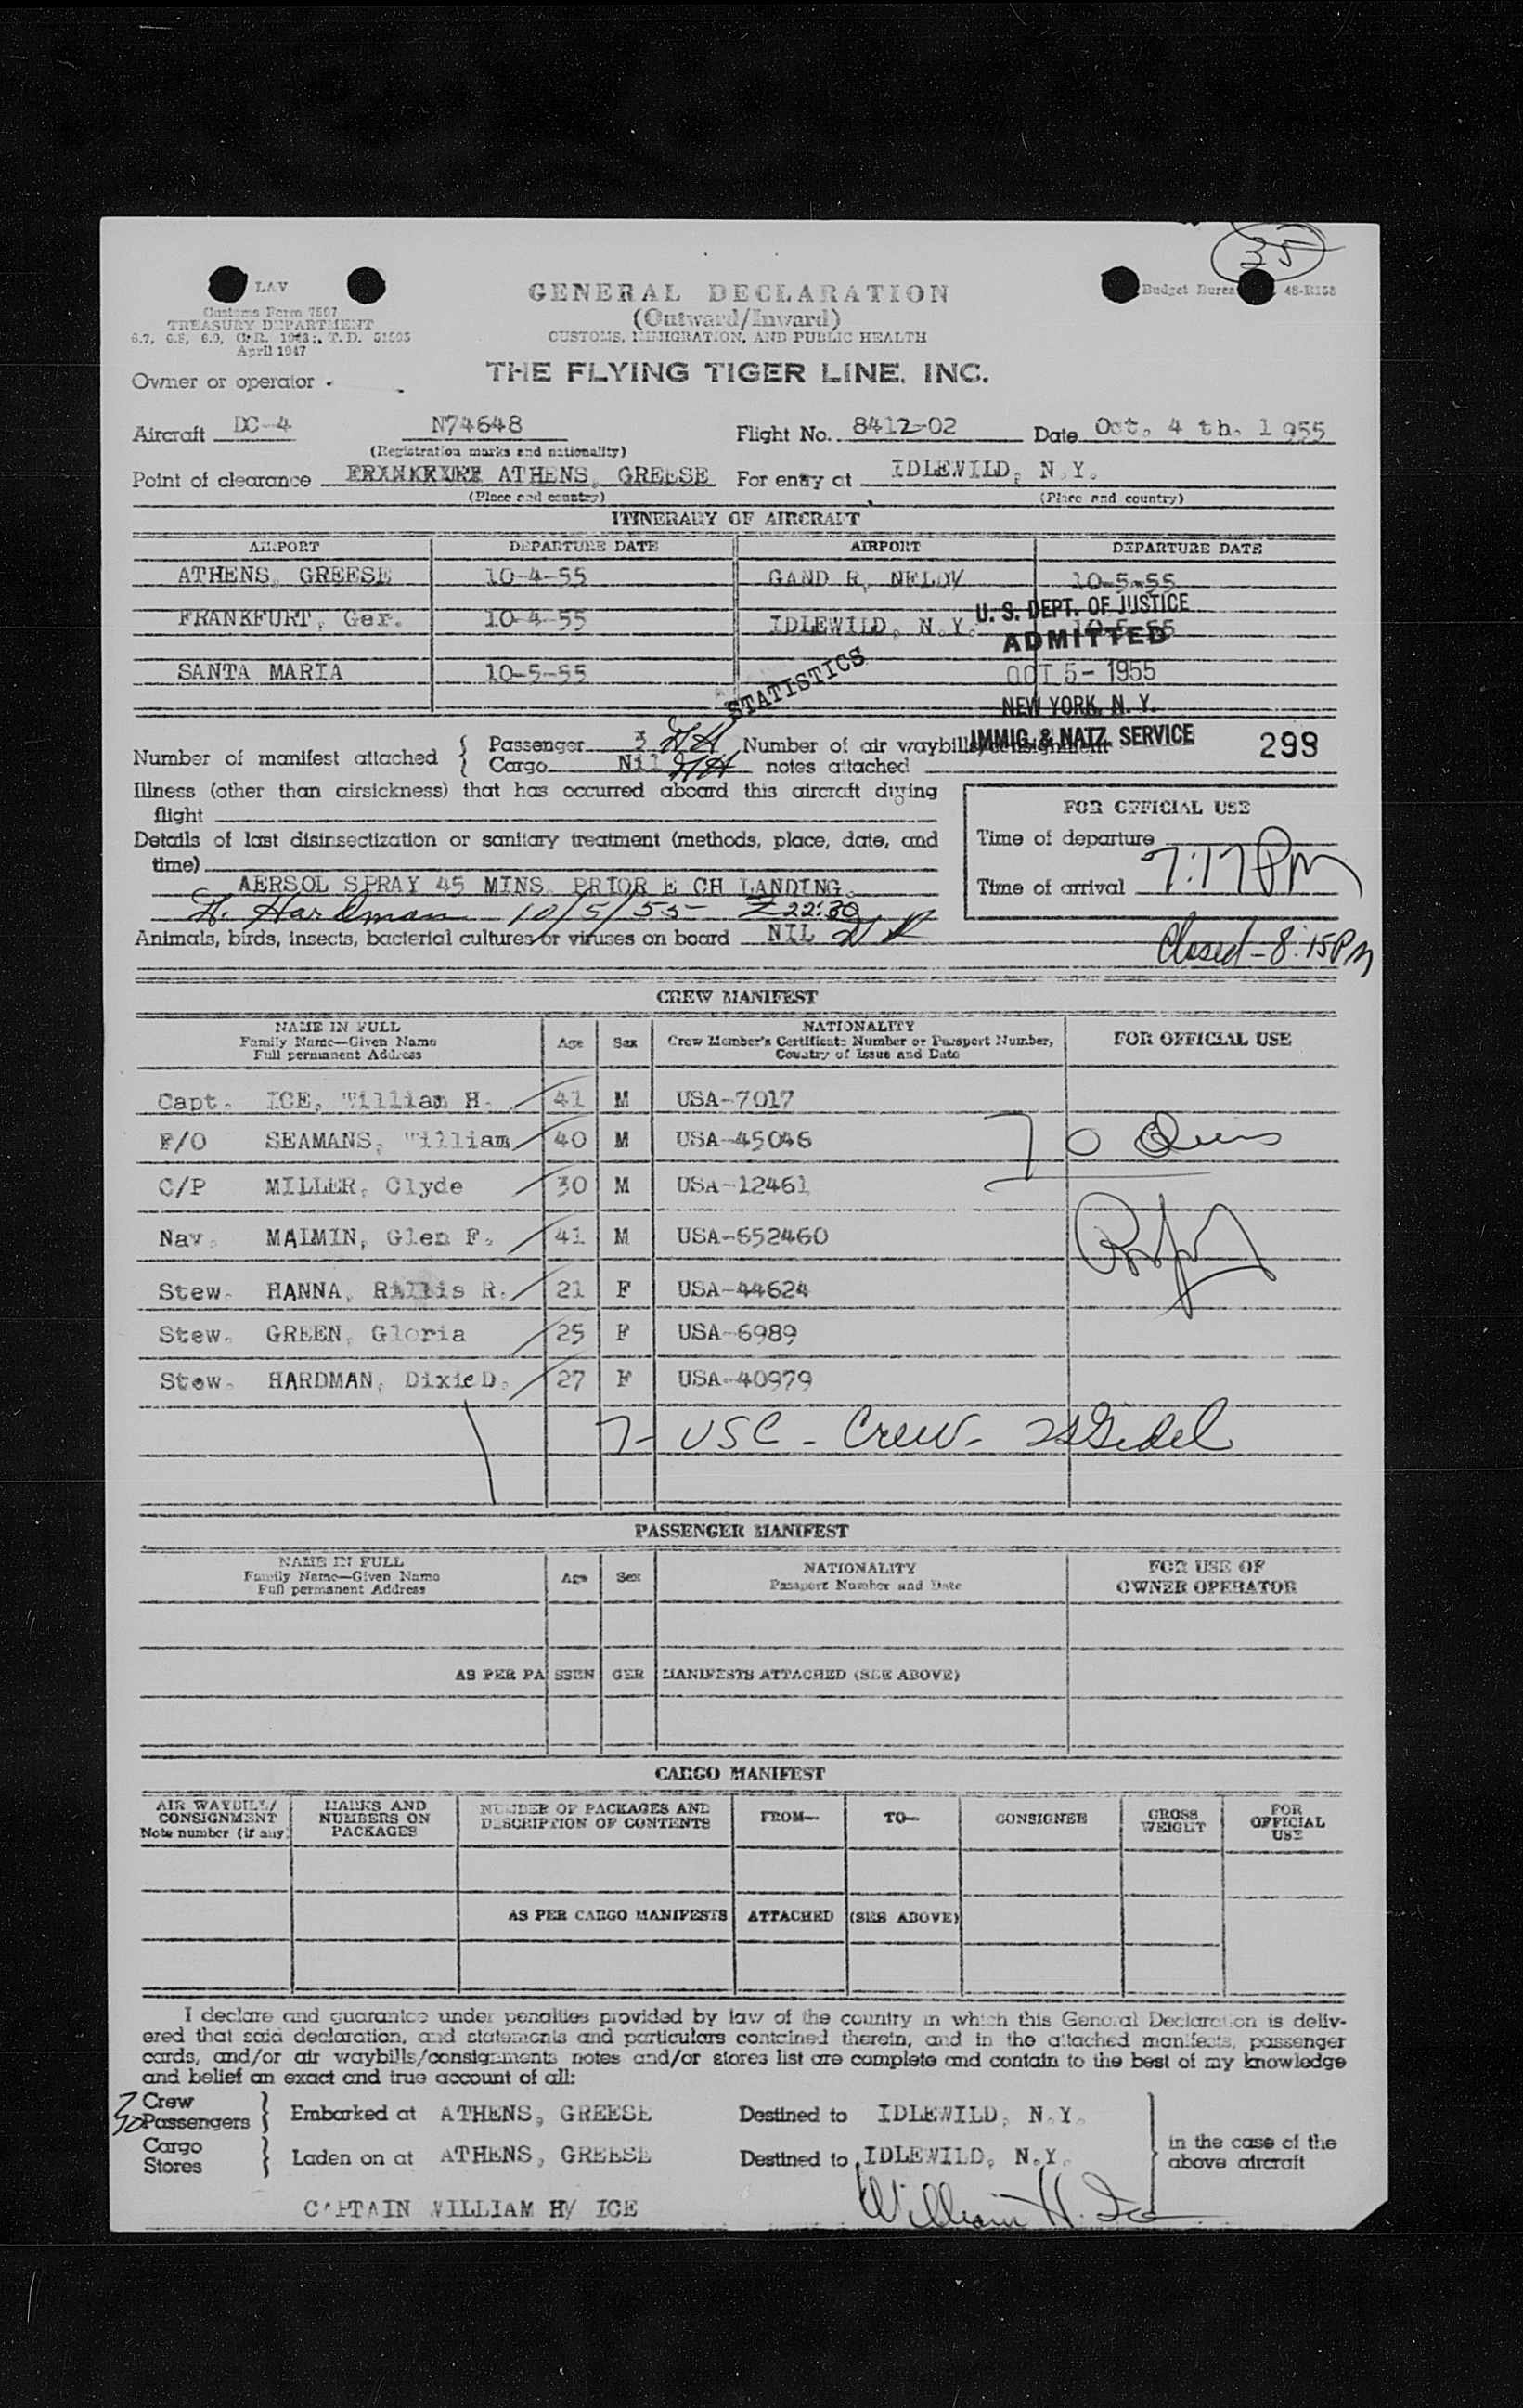 35
LAV
Customs Form 7507
TREASURY DEPARTMENT
6.7, 6.8, 6.9, C. R. 1943; T. D. 51595
April 1947
GENERAL DECLARATION
(Outward/Inward)
CUSTOMS, IMMIGRATION, AND PUBLIC HEALTH
Budget Burea 48-R158
Owner or operator
THE FLYING TIGER LINE, INC.
Aircraft DC-4 N74648 Flight No. 8412-02 Date Oct. 4 th. 1955
(Registration marks and nationality)
Point of clearance FRANKFURT ATHENS, GREESE For entry at IDLEWILD, N.Y.
(Place and country) (Place and country)
ITINERARY OF AIRCRAFT
AIRPORT DEPARTURE DATE AIRPORT DEPARTURE DATE
ATHENS, GREESE 10-4-55 GAND R, 10-5-55
FRANKFURT, Ger. 10-4-55 IDLEWILD, N.Y. 10-5-55
SANTA MARIA 10-5-55
STATISTICS
U. S. DEPT. OF JUSTICE
ADMITTED
OCT 5- 1955
NEW YORK, N. Y.
IMMIG. & NATZ. SERVICE 299
Number of manifest attached { Passenger 3 Number of air waybills/consignment
Cargo Nil notes attached
Illness (other than airsickness) that has occurred aboard this aircraft during
flight
Details of last disinsectization or sanitary treatment (methods, place, date, and
time)
AERSOL SPRAY 45 MINS. PRIOR E CH LANDING.
Hardman 10/5/55 Z 22:30
Animals, birds, insects, bacterial cultures or viruses on board NIL
FOR OFFICIAL USE
Time of departure
Time of arrival 7:17 PM
Closed - 8:15 PM
CREW MANIFEST
NAME IN FULL
Family Name—Given Name
Full permanent Address
Age Sex
NATIONALITY
Crew Member's Certificate Number or Passport Number,
Country of Issue and Date
FOR OFFICIAL USE
Capt. ICE, William H. 41 M USA-7017
F/O SEAMANS, William 40 M USA-45046
C/P MILLER, Clyde 30 M USA-12461
Nav. MAIMIN, Glen F. 41 M USA-652460
Stew. HANNA, R. 21 F USA-44624
Stew. GREEN, Gloria 25 F USA-6989
Stew. HARDMAN, Dixie D. 27 F USA-40979
7 - USC - Crew -
PASSENGER MANIFEST
NAME IN FULL
Family Name—Given Name
Full permanent Address
Age Sex
NATIONALITY
Passport Number and Date
FOR USE OF
OWNER OPERATOR
AS PER PASSENGER MANIFESTS ATTACHED (SEE ABOVE)
CARGO MANIFEST
AIR WAYBILL/
CONSIGNMENT
Note number (if any)
MARKS AND
NUMBERS ON
PACKAGES
NUMBER OF PACKAGES AND
DESCRIPTION OF CONTENTS
FROM— TO— CONSIGNEE
GROSS
WEIGHT
FOR
OFFICIAL
USE
AS PER CARGO MANIFESTS ATTACHED (SEE ABOVE)
I declare and guarantee under penalties provided by law of the country in which this General Declaration is deliv-
ered that said declaration, and statements and particulars contained therein, and in the attached manifests, passenger
cards, and/or air waybills/consignments notes and/or stores list are complete and contain to the best of my knowledge
and belief an exact and true account of all:
7 Crew
Passengers } Embarked at ATHENS, GREESE Destined to IDLEWILD, N.Y.
Cargo
Stores } Laden on at ATHENS, GREESE Destined to IDLEWILD, N.Y.
in the case of the
above aircraft
CAPTAIN WILLIAM H/ ICE William H. Ice